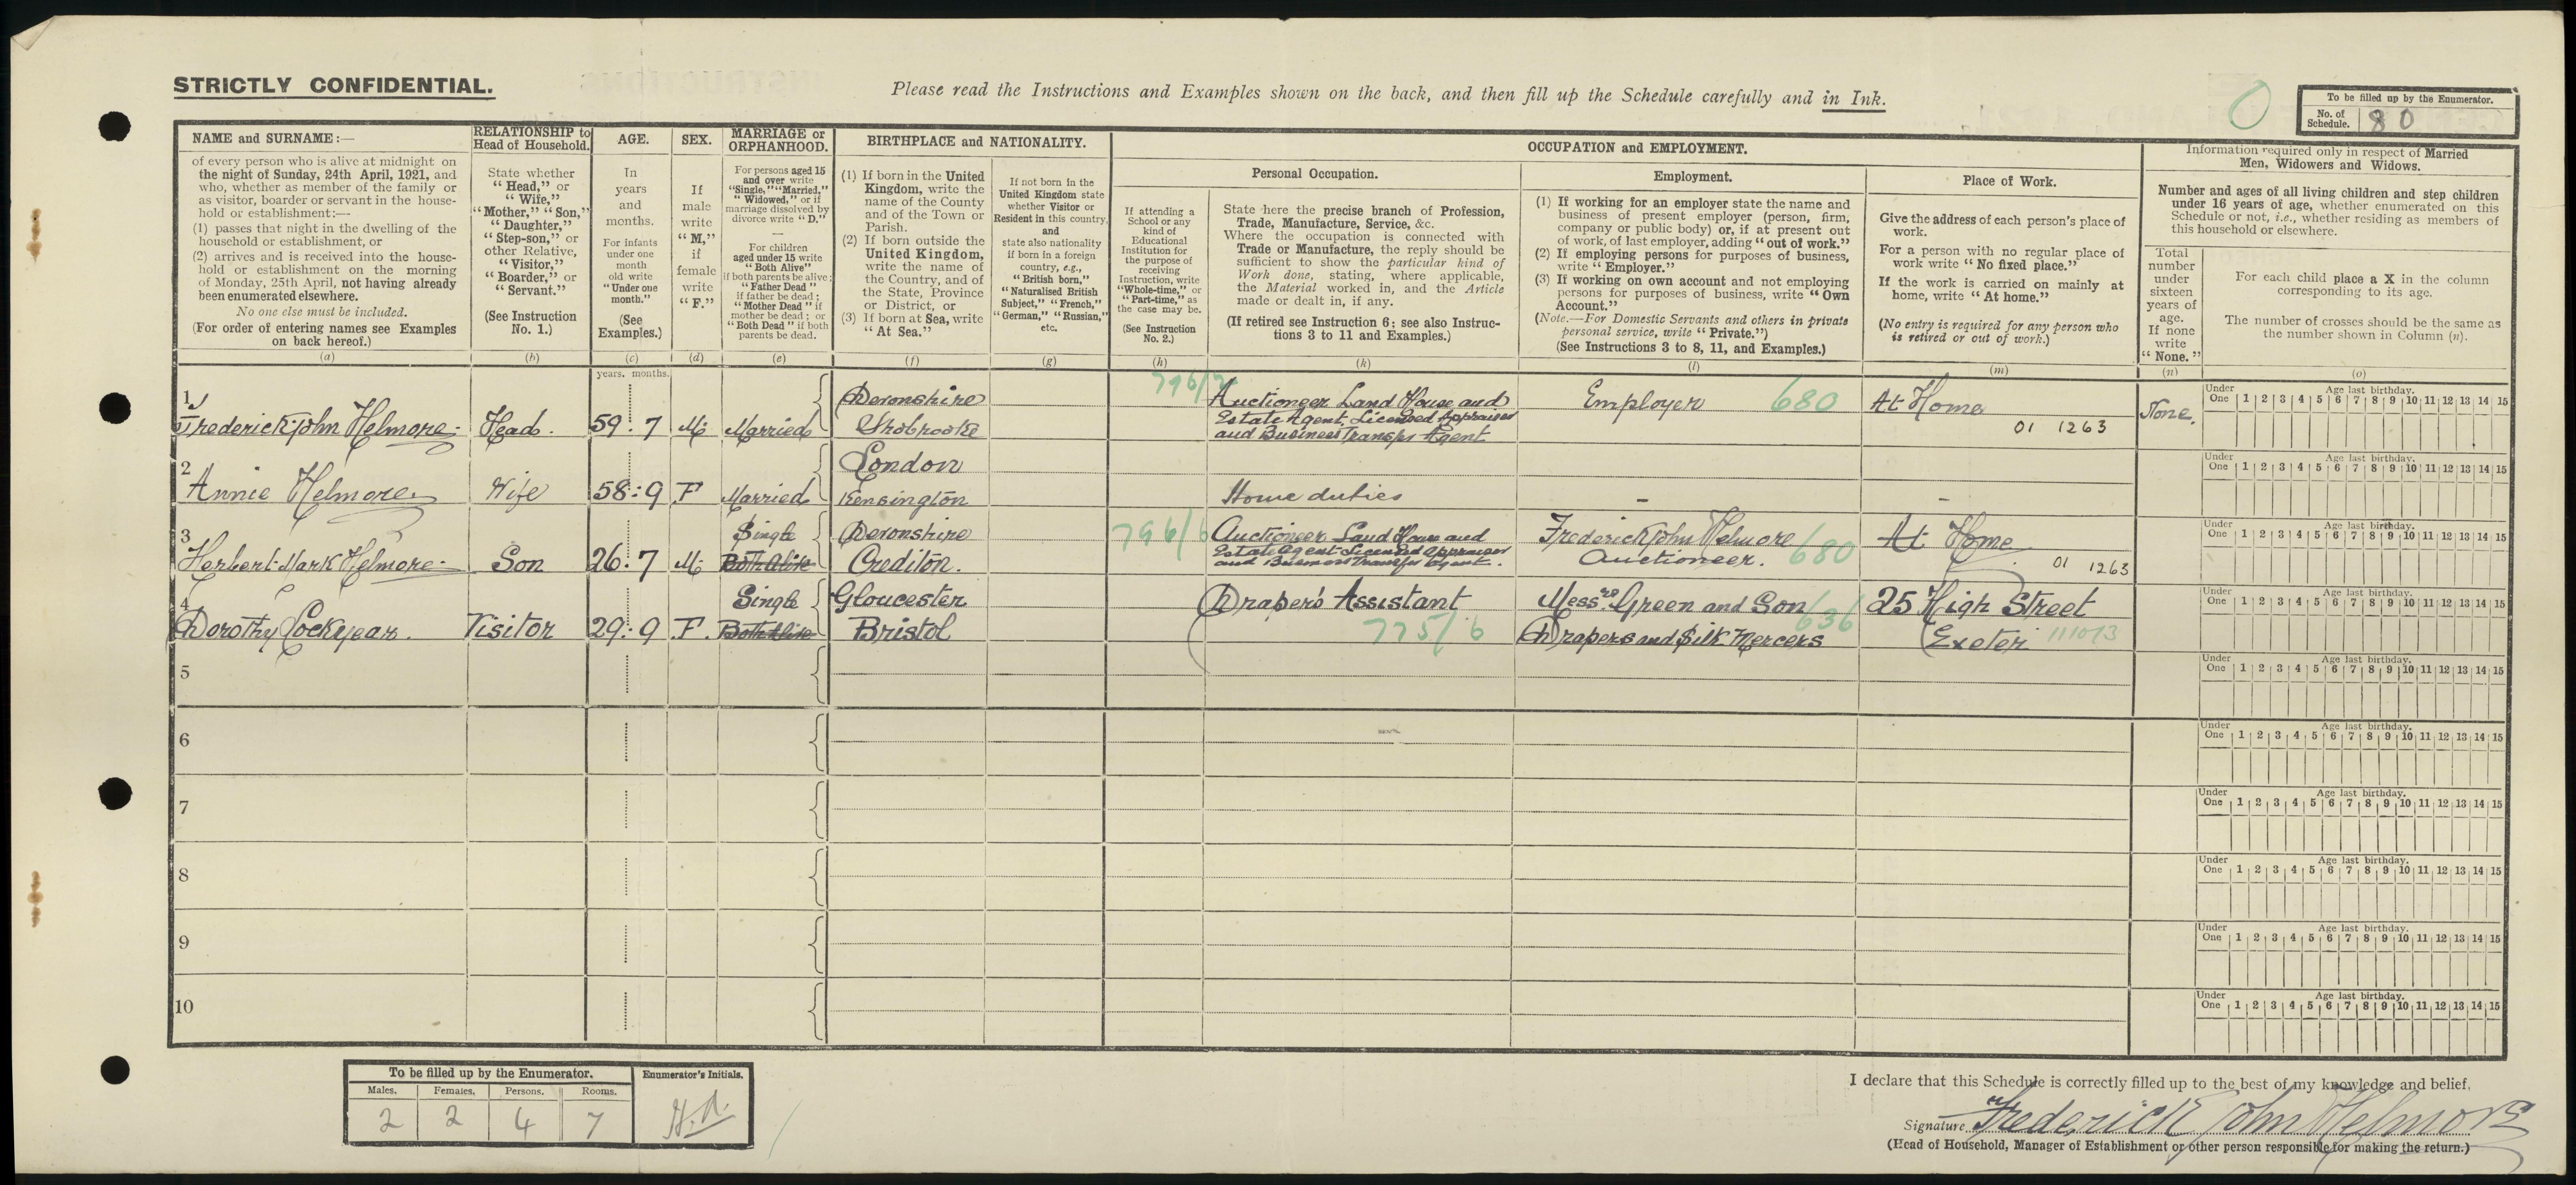 STRICTLY CONFIDENTIAL.
Please read the Instructions and Examples shown on the back, and then fill up the Schedule carefully and in Ink.
To be filled up by the Enumerator.
No. of Schedule. 80
NAME and SURNAME:—
of every person who is alive at midnight on
the night of Sunday, 24th April, 1921, and
who, whether as member of the family or
as visitor, boarder or servant in the house-
hold or establishment:—
(1) passes that night in the dwelling of the
household or establishment, or
(2) arrives and is received into the house-
hold or establishment on the morning
of Monday, 25th April, not having already
been enumerated elsewhere.
No one else must be included.
(For order of entering names see Examples
on back hereof.)
(a)
RELATIONSHIP to
Head of Household.
State whether
"Head," or
"Wife,"
"Mother," "Son,"
"Daughter,"
"Step-son," or
other Relative,
"Visitor,"
"Boarder," or
"Servant."
(See Instruction
No. 1.)
(b)
AGE.
In
years
and
months.
For infants
under one
month
old write
"Under one
month."
(See
Examples.)
(c)
SEX.
If
male
write
"M,"
if
female
write
"F."
(d)
MARRIAGE or
ORPHANHOOD.
For persons aged 15
and over write
"Single," "Married,"
"Widowed," or if
marriage dissolved by
divorce write "D."
—
For children
aged under 15 write
"Both Alive"
if both parents be alive;
"Father Dead"
if father be dead;
"Mother Dead" if
mother be dead; or
"Both Dead" if both
parents be dead.
(e)
BIRTHPLACE and NATIONALITY.
(1) If born in the United
Kingdom, write the
name of the County
and of the Town or
Parish.
(2) If born outside the
United Kingdom,
write the name of
the Country, and of
the State, Province
or District, or
(3) If born at Sea, write
"At Sea."
(f)
If not born in the
United Kingdom state
whether Visitor or
Resident in this country,
and
state also nationality
if born in a foreign
country, e.g.,
"British born,"
"Naturalised British
Subject," "French,"
"German," "Russian,"
etc.
(g)
OCCUPATION and EMPLOYMENT.
If attending a
School or any
kind of
Educational
Institution for
the purpose of
receiving
Instruction, write
"Whole-time," or
"Part-time," as
the case may be.
(See Instruction
No. 2.)
(h)
Personal Occupation.
State here the precise branch of Profession,
Trade, Manufacture, Service, &c.
Where the occupation is connected with
Trade or Manufacture, the reply should be
sufficient to show the particular kind of
Work done, stating, where applicable,
the Material worked in, and the Article
made or dealt in, if any.
(If retired see Instruction 6; see also Instruc-
tions 3 to 11 and Examples.)
(k)
Employment.
(1) If working for an employer state the name and
business of present employer (person, firm,
company or public body) or, if at present out
of work, of last employer, adding "out of work."
(2) If employing persons for purposes of business,
write "Employer."
(3) If working on own account and not employing
persons for purposes of business, write "Own
Account."
(Note.—For Domestic Servants and others in private
personal service, write "Private.")
(See Instructions 3 to 8, 11, and Examples.)
(l)
Place of Work.
Give the address of each person's place of
work.
For a person with no regular place of
work write "No fixed place."
If the work is carried on mainly at
home, write "At home."
(No entry is required for any person who
is retired or out of work.)
(m)
Information required only in respect of Married
Men, Widowers and Widows.
Number and ages of all living children and step children
under 16 years of age, whether enumerated on this
Schedule or not, i.e., whether residing as members of
this household or elsewhere.
Total
number
under
sixteen
years of
age.
If none
write
"None."
(n)
For each child place a X in the column
corresponding to its age.
The number of crosses should be the same as
the number shown in Column (n).
(o)
years. months.
1 Frederick John Helmore. Head. 59 7 M. Married
Devonshire
Shobrooke
796/
Auctioneer Land House and
Estate Agent, Licensed Appraiser
and Business Transfer Agent
Employer 680
At Home
01 1263
None.
Under One Age last birthday. 1 2 3 4 5 6 7 8 9 10 11 12 13 14 15
2 Annie Helmore. Wife 58 9 F Married
London
Kensington
Home duties - -
Under One Age last birthday. 1 2 3 4 5 6 7 8 9 10 11 12 13 14 15
3 Herbert Mark Helmore. Son 26 7 M. Single
Both Alive
Devonshire
Crediton.
796/6
Auctioneer Land House and
Estate Agent Licensed Appraiser
and Business Transfer Agent.
Frederick John Helmore
Auctioneer. 680
At Home
01 1263
Under One Age last birthday. 1 2 3 4 5 6 7 8 9 10 11 12 13 14 15
4 Dorothy Lockyear. Visitor 29 9 F. Single
Both Alive
Gloucester
Bristol
Draper's Assistant
775/6
Messrs Green and Son
Drapers and Silk Mercers
636
25 High Street
Exeter 111013
Under One Age last birthday. 1 2 3 4 5 6 7 8 9 10 11 12 13 14 15
5
Under One Age last birthday. 1 2 3 4 5 6 7 8 9 10 11 12 13 14 15
6
Under One Age last birthday. 1 2 3 4 5 6 7 8 9 10 11 12 13 14 15
7
Under One Age last birthday. 1 2 3 4 5 6 7 8 9 10 11 12 13 14 15
8
Under One Age last birthday. 1 2 3 4 5 6 7 8 9 10 11 12 13 14 15
9
Under One Age last birthday. 1 2 3 4 5 6 7 8 9 10 11 12 13 14 15
10
Under One Age last birthday. 1 2 3 4 5 6 7 8 9 10 11 12 13 14 15
To be filled up by the Enumerator.
Males. Females. Persons. Rooms.
2 2 4 7
Enumerator's Initials.
I declare that this Schedule is correctly filled up to the best of my knowledge and belief,
Signature Frederick John Helmore
(Head of Household, Manager of Establishment or other person responsible for making the return.)